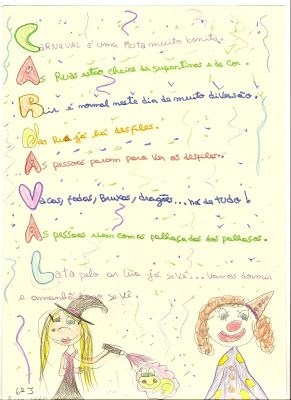 CARNAVAL é uma festa muito bonita.
As Ruas estão cheias de serpentinas e de cor.
Rir é normal neste dia de muito diversão.
Nas Rua já há desfiles.
As pessoas param para ver os desfiles.
Vacas, fadas, Bruxas, dragões... há de tudo!
As pessoas riem com as palhaçadas dos palhaços.
pelo ar lua já se vê... Vamos dormir
e amanhã logo se vê.
6º J